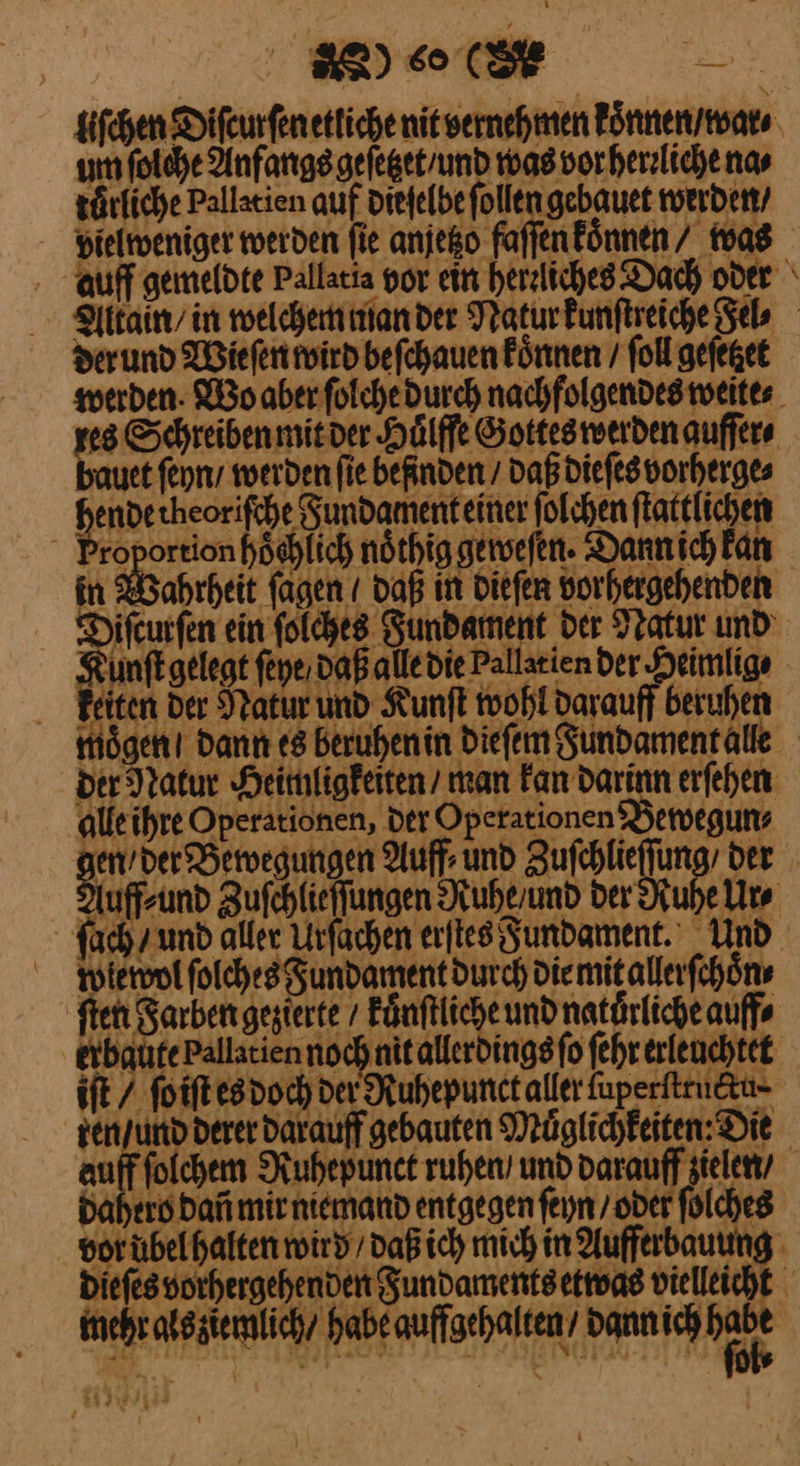 ) 60 (
liſchen Diſcurſen etliche nit vernehmen koͤnnen/war⸗
um ſolche Anfangs geſetzet/und was vor herꝛliche na⸗
tuͤrliche Pallatien auf dieſelbe ſollen gebauet werden/
vielweniger werden ſie anjetzo faſſen koͤnnen / was
auff gemeldte Pallatia vor ein herꝛliches Dach oder
Altain/in welchem man der Natur kunſtreiche Fel⸗
der und Wieſen wird beſchauen koͤnnen / ſoll geſetzet
werden. Wo aber ſolche durch nachfolgendes weite⸗
res Schreiben mit der Huͤlffe Gottes werden auſſer⸗
bauet ſeyn/ werden ſie befinden / daß dieſes vorherge⸗
hende theoriſche Fundament einer ſolchen ſtattlichen
Proportion hoͤchlich noͤthig geweſen. Dann ich kan
in Wahrheit ſagen / daß in dieſen vorhergehenden
Diſcurſen ein ſolches Fundament der Natur und
Kunſt gelegt ſeye/daß alle die Pallatien der Heimlig⸗
keiten der Natur und Kunſt wohl darauff beruhen
moͤgen/ dann es beruhen in dieſem Fundament alle
der Natur Heimligkeiten / man kan darinn erſehen
alle ihre Operationen, der Operationen Bewegun⸗
gen/der Bewegungen Auff⸗ und Zuſchlieſſung/ der
Auff⸗und Zuſchlieſſungen Ruhe/und der Ruhe Ur⸗
ſach / und aller Urſachen erſtes Fundament. Und
wiewol ſolches Fundament durch die mit allerſchoͤn⸗
ſten Farben gezierte / kuͤnſtliche und natuͤrliche auff⸗
erbaute Pallatien noch nit allerdings ſo ſehr erleuchtet
iſt / ſo iſt es doch der Ruhepunct aller ſuperſtructu-
ren/und derer darauff gebauten Muͤglichkeiten: Die
auff ſolchem Ruhepunct ruhen/ und darauff zielen/
dahero dañ mir niemand entgegen ſeyn / oder ſolches
vor uͤbel halten wird / daß ich mich in Aufferbauung
dieſes vorhergehenden Fundaments etwas vielleicht
mehr als ziemlich/ habe auffgehalten / dann ich habe
ſol⸗